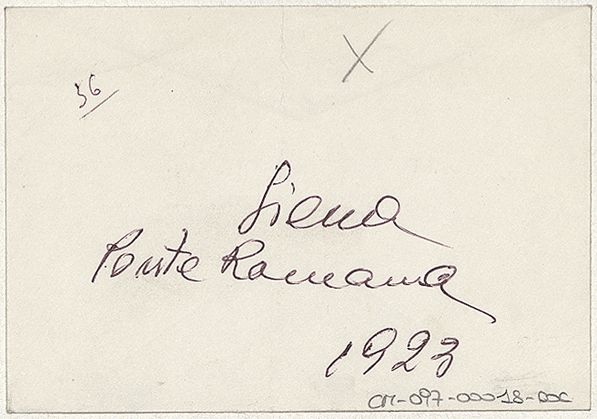 36
X
Siena
Ponte Romana
1923
CM-097-00018-DOC